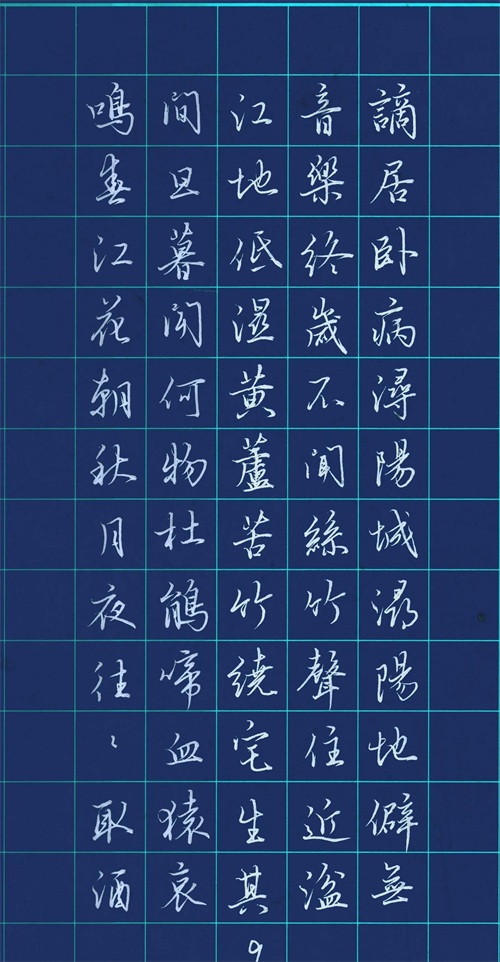 謫居卧病潯陽城潯陽地僻無
音樂終歲不聞絲竹聲住近湓
江地低濕黃蘆苦竹繞宅生其
間旦暮聞何物杜鵑啼血猿哀
鳴春江花朝秋月夜往〻取酒
9